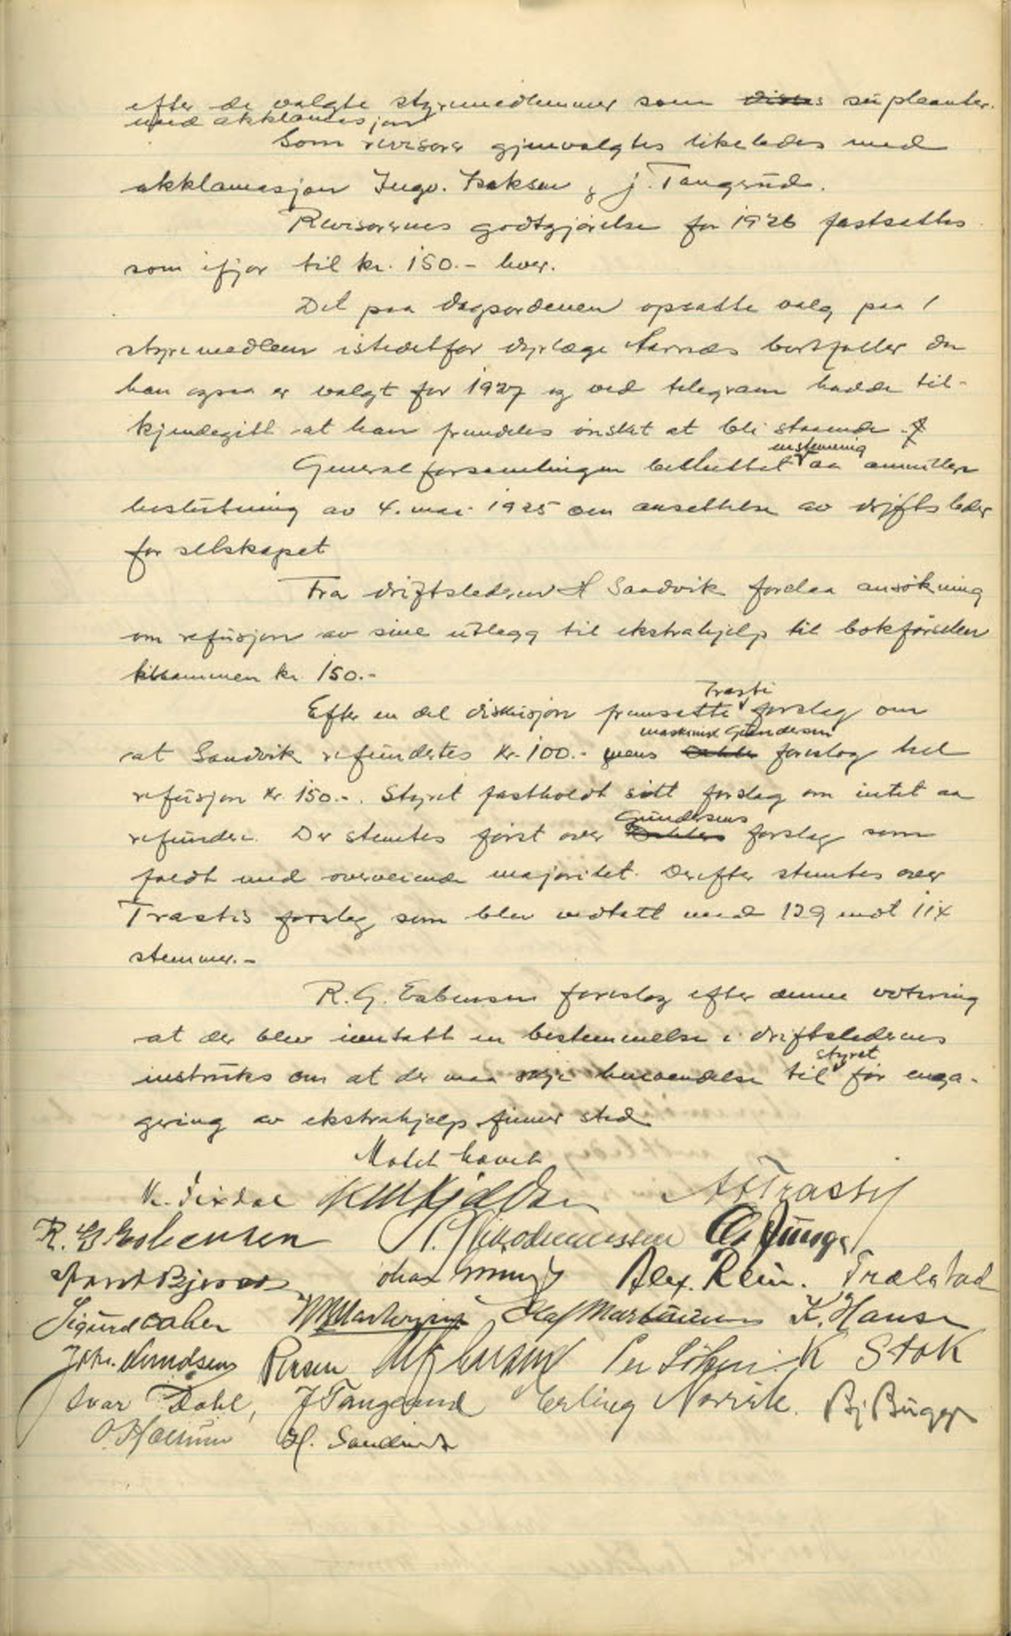 efter de valgte styremedlemmer som disses supleanter.
med akklamasjon
Som revisorer gjenvalgtes likeledes med
akklamasjon Ingv. Isaksen og J. Tangerud.
Revisorernes godtgjørelse for 1926 fastsattes
som ifjor til kr. 150.- hver.
Det paa dagsordenen opsatte valg paa 1
styremedlem istedetfor dyrlæge Aarnæs bortfaller da
han ogsaa er valgt for 1927 og ved telegram hadde til-
kjendegitt at han fremdeles ønsket at bli staaende.
enstemmig
Generalforsamlingen besluttet aa annullere
beslutning av 4. mai 1925 om ansettelse av driftsleder
for selskapet
Fra driftslederen H Sandvik forelaa ansøkning
om refusjon av sine utlegg til ekstrahjelp til bokførselen
tilsammen kr 150.-
Trasti
Efter en del diskusjon fremsatte forslag om
maskinist Gundersen
at Sandvik refundertes kr. 100.- mens foreslog hel
refusjon kr. 150.-. Styret fastholdt sitt forslag om intet aa
Gundersens
refundere. Der stemtes først over forslag som
faldt med overveiende majoritet. Derefter stemtes over
Trastis forslag som blev vedtatt med 129 mot 114
stemmer.-
R. G. Esbensen foreslog efter denne votering
at der blev inntatt en bestemmelse i driftslederens
styret
instruks om at der maa skje henvendelse til før enga-
gering av ekstrahjelp finner sted
Møtet hævet
A F Trasti
R. G Esbensen P. Nikodemussen
Alex. Rein. Trælstad
Sigurd Olaf Martinsen K. Hansen
Johs. Knudsen K Stok
Ivar Dahl, J Tangerud Erling Norvik. Bj. Bugge
H. Sandvik